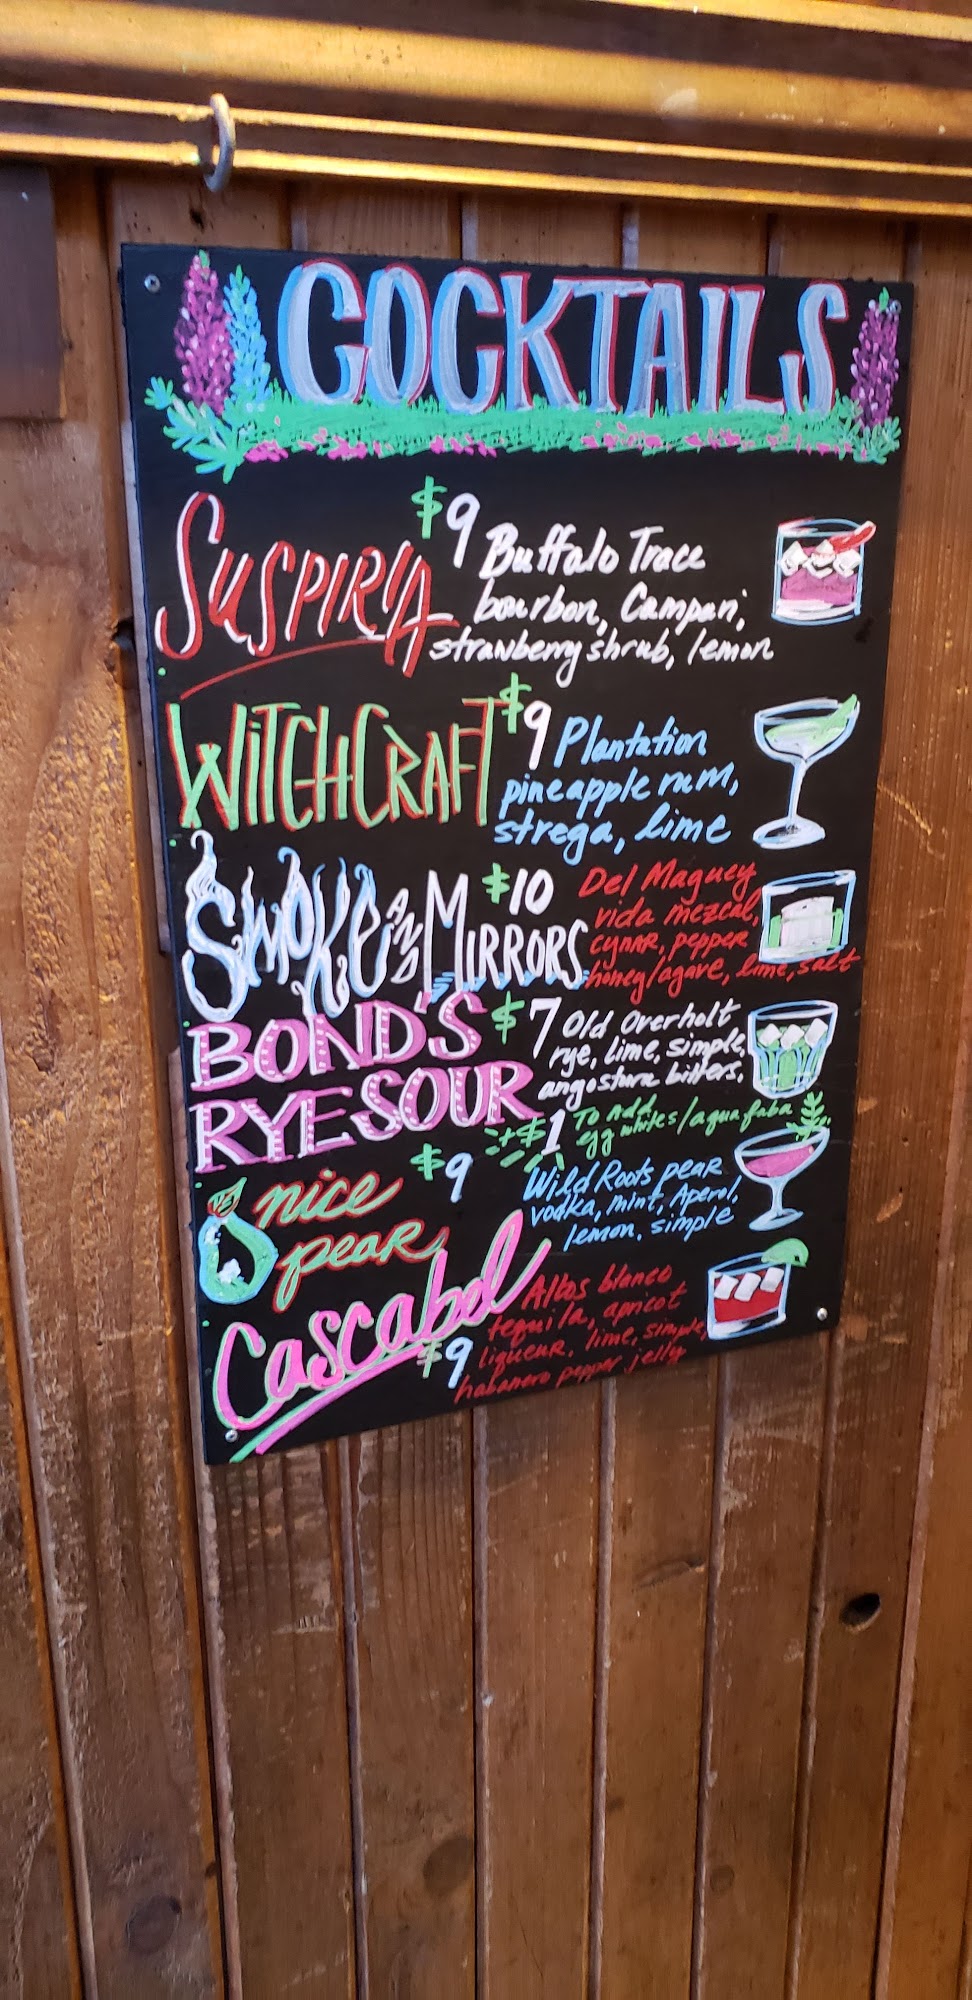 COCKTAILS
SUSPIRIA $9 Buffalo Trace
bourbon, Campari,
strawberry shrub, lemon
WITCHCRAFT $9 Plantation
pineapple rum,
strega, lime
SMOKE AND MIRRORS $10 Del Maguey
vida mezcal,
cynar, pepper
honey/agave, lime, salt
BOND'S $7 Old Overholt
RYE SOUR rye, lime, simple,
angostura bitters.
+$1 To Add
egg whites/aqua faba
nice $9 Wild Roots pear
pear vodka, mint, Aperol,
lemon, simple
Cascabel Altos blanco
$9 tequila, apricot
liqueur, lime, simple,
habanero pepper jelly